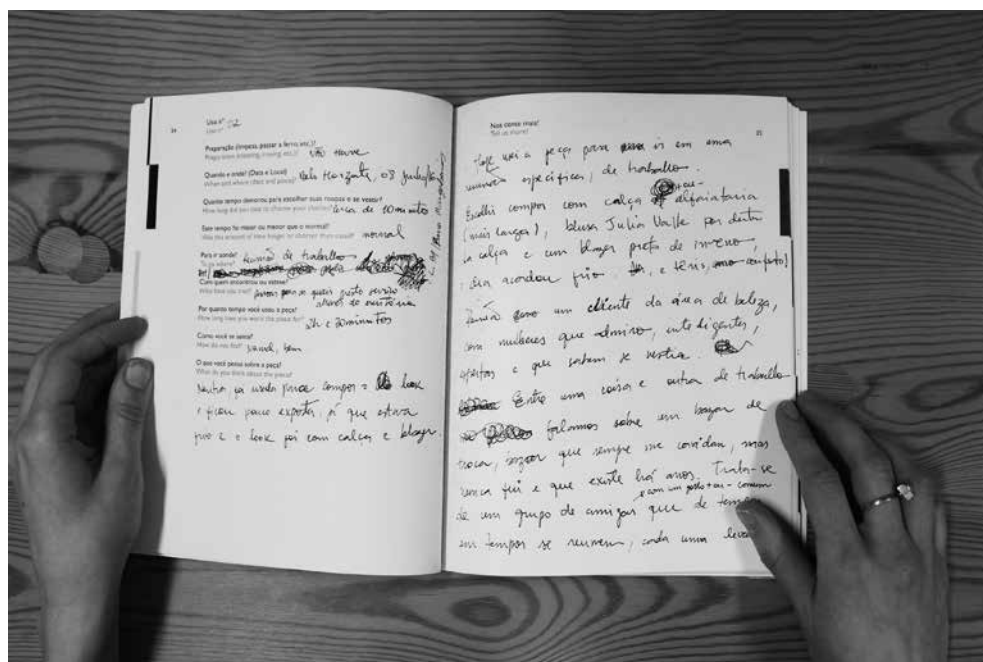 24
Uso nº 02
Use nº
Preparação (limpeza, passar a ferro, etc.)? não houve
Preparation (cleaning, ironing, etc.)?
Quando e onde? (Data e Local) Belo Horizonte, 03 junho
When and where (date and place)?
Quanto tempo demorou para escolher suas roupas e se vestir?
How long did you take to choose your clothes? cerca de 10 minutos
Este tempo foi maior ou menor que o normal?
Was this amount of time longer or shorter than usual? normal
Para ir aonde? Reunião de trabalho
To go where?
Com quem encontrou ou esteve?
Who have you met? pessoas para as quais presto serviço
através da consultoria
Por quanto tempo você usou a peça?
How long have you worn the piece for? 2h e 30 minutos
Como você se sentiu?
How do you feel? normal, bem
O que você pensa sobre a peça?
What do you think about the piece?
Neutra, foi usada para compor o look
e ficou pouco exposta, já que estava
frio e o look foi com calça e blazer.
Nos conte mais!
Tell us more!
25
Hoje usei a peça para ir em uma
reunião específica, de trabalho.
Escolhi compor com calça alfaiataria
(mais larga), blusa Julia Valle por dentro
da calça e um blazer preto de inverno,
o dia acordou frio, e tênis, conforto!
Reunião com um cliente da área de beleza,
com mulheres que admiro, inteligentes,
abertas e que sabem se vestir.
Entre uma coisa e outra de trabalho
falamos sobre um bazar de
troca, bazar que sempre me convidam, mas
nunca fui e que existe há anos. Trata-se
e com um gosto + ou - comum
de um grupo de amigas que de tempos
em tempos se reunem, cada uma leva